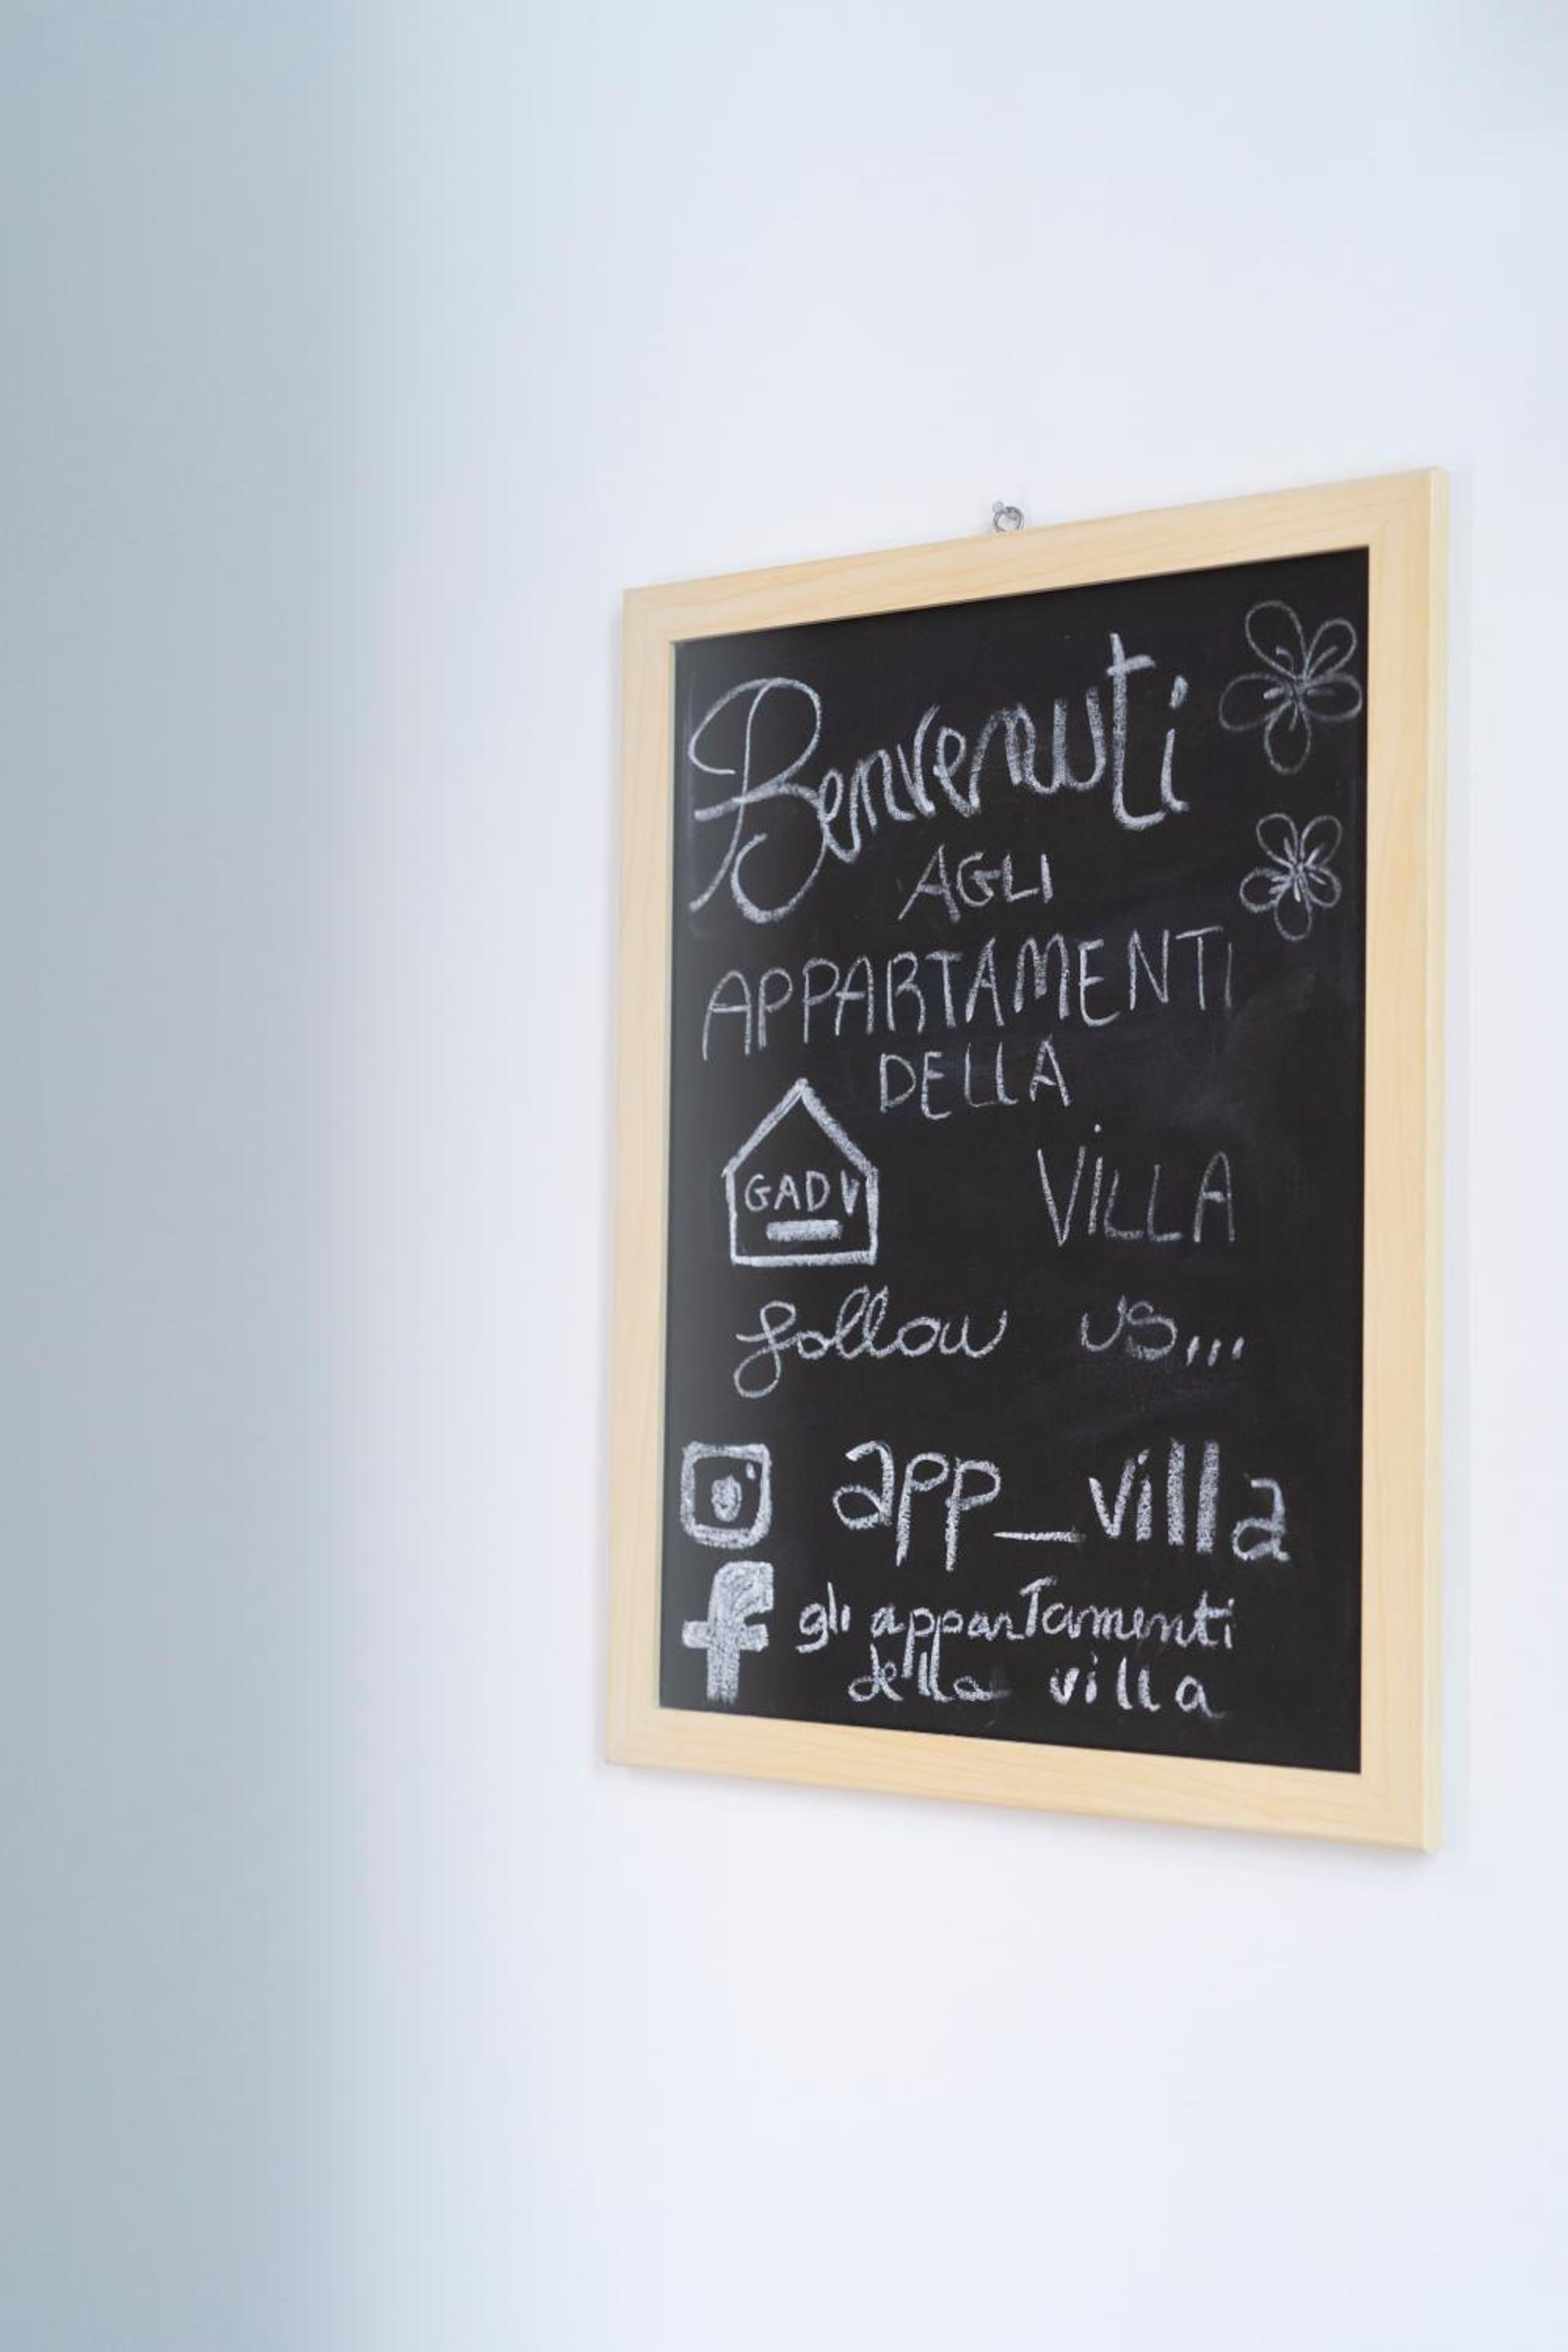 Benvenuti
AGLI
APPARTAMENTI
DELLA
GADV
VILLA
follow us...
app_villa
gli appartamenti
della villa